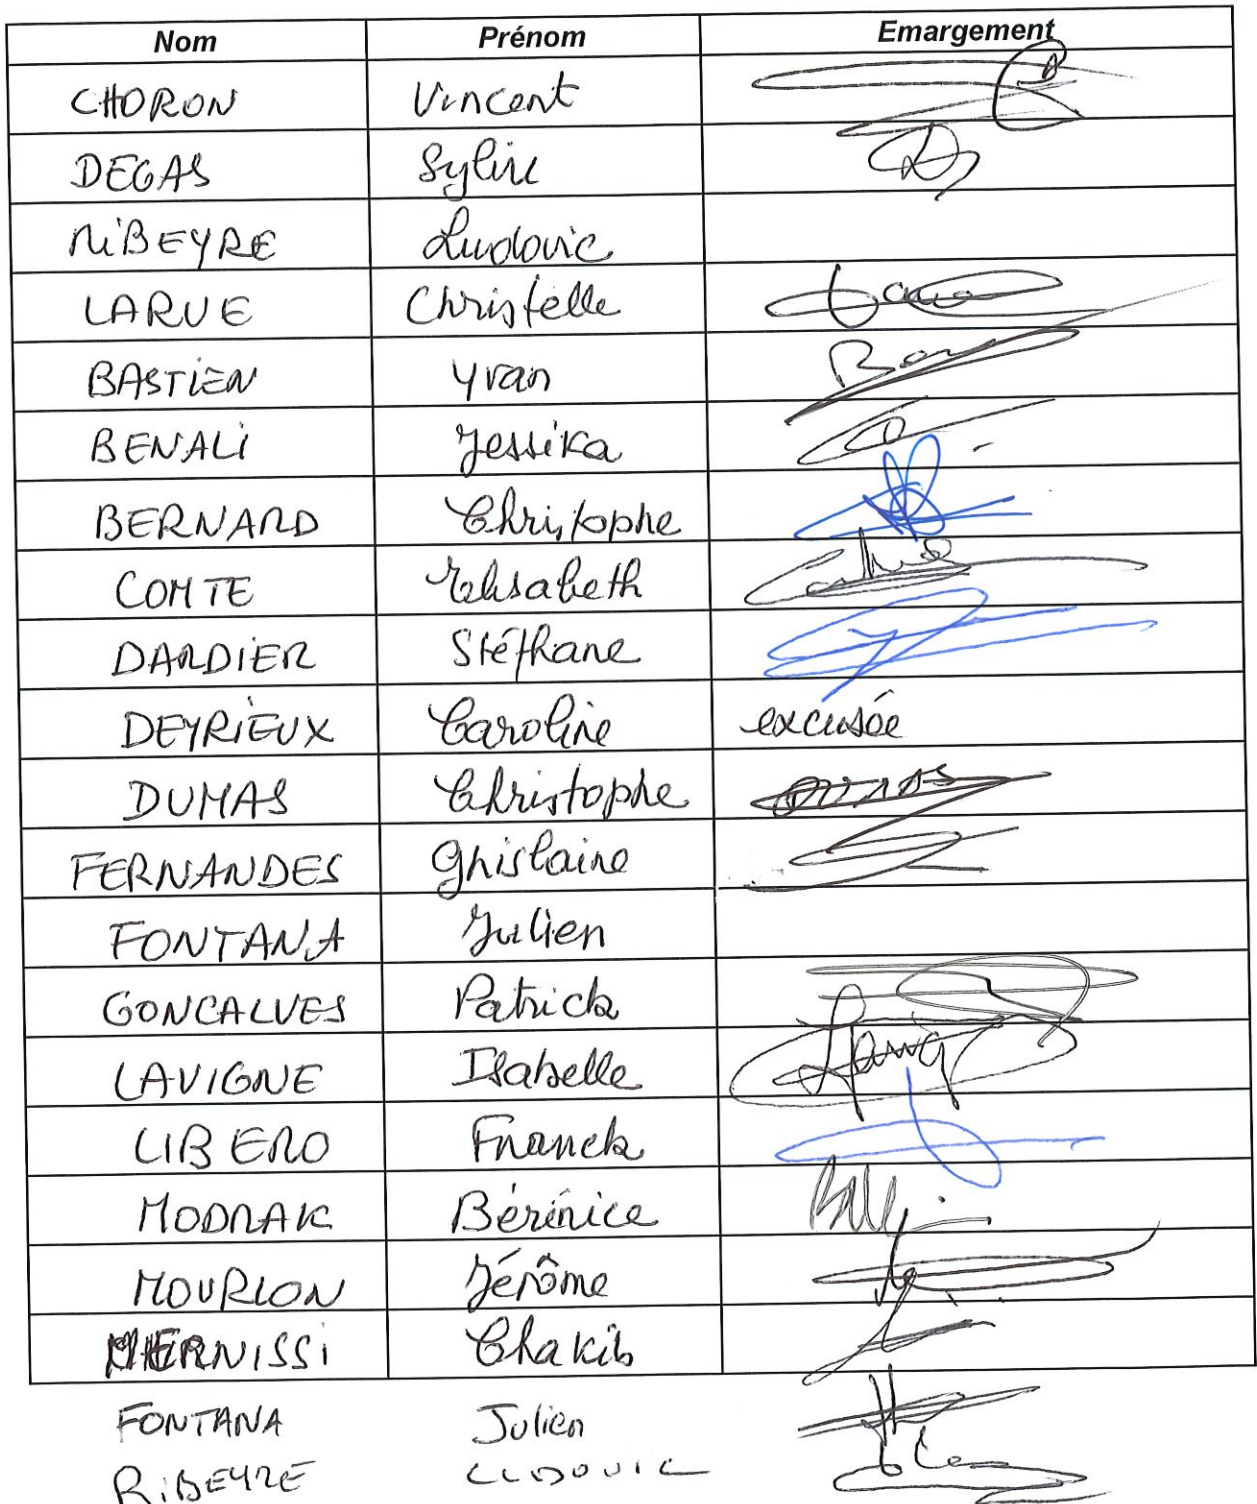 Nom Prénom Emargement
CHORON Vincent
DEGAS Sylvie
RiBEYRE Ludovic
LARUE Christelle
BASTIEN Yvan
BENALI Jessika
BERNARD Christophe
COMTE Elisabeth
DARDIER Stéphane
DEYRIEUX Caroline excusée
DUMAS Christophe
FERNANDES Ghislaine
FONTANA Julien
GONCALVES Patrick
LAVIGNE Isabelle
LIBERO Franck
MODRAK Bérénice
MOURLON Jérôme
MERNISSI Chakib
FONTANA Julien
RiBEYRE LUDOVIC